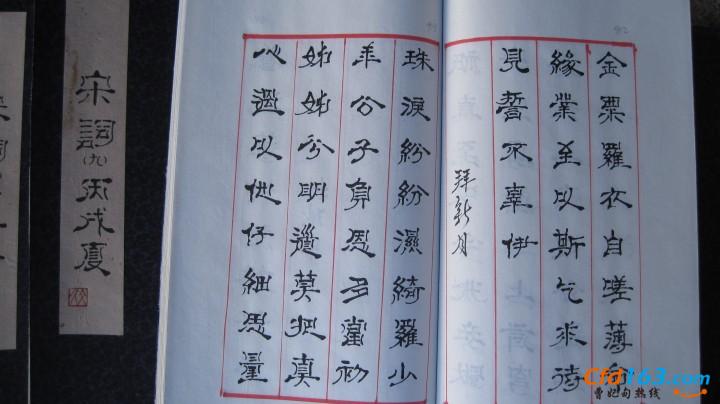 金粟羅衣自嗟薄命
緣業至以斯乞求待
見誓不辜伊
拜新月
珠淚紛紛濕綺羅少
年公子負恩多當初
姊姊分明道莫把真
心過以他仔細思量
宋詞(九)丙戌夏
92
Cfd163.com
曹妃甸热线